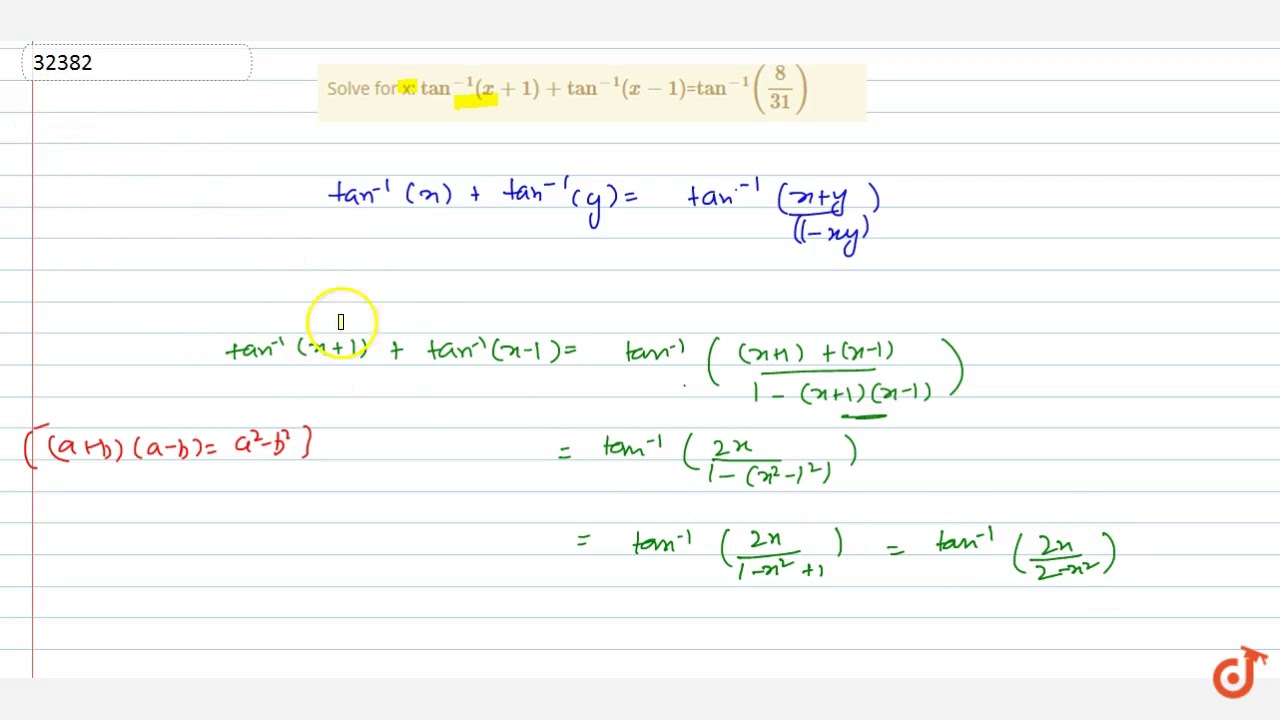 32382
Solve for x: tan⁻¹(x + 1) + tan⁻¹(x − 1)=tan⁻¹(8/31)
tan⁻¹ (x) + tan⁻¹ (y) = tan⁻¹ (x+y / (1-xy))
tan⁻¹ (x+1) + tan⁻¹ (x-1) = tan⁻¹ ((x+1) + (x-1) / 1 - (x+1)(x-1))
[(a+b) (a-b) = a²-b²]
= tan⁻¹ (2x / 1 - (x²-1²))
= tan⁻¹ (2x / 1-x²+1) = tan⁻¹ (2x / 2-x²)